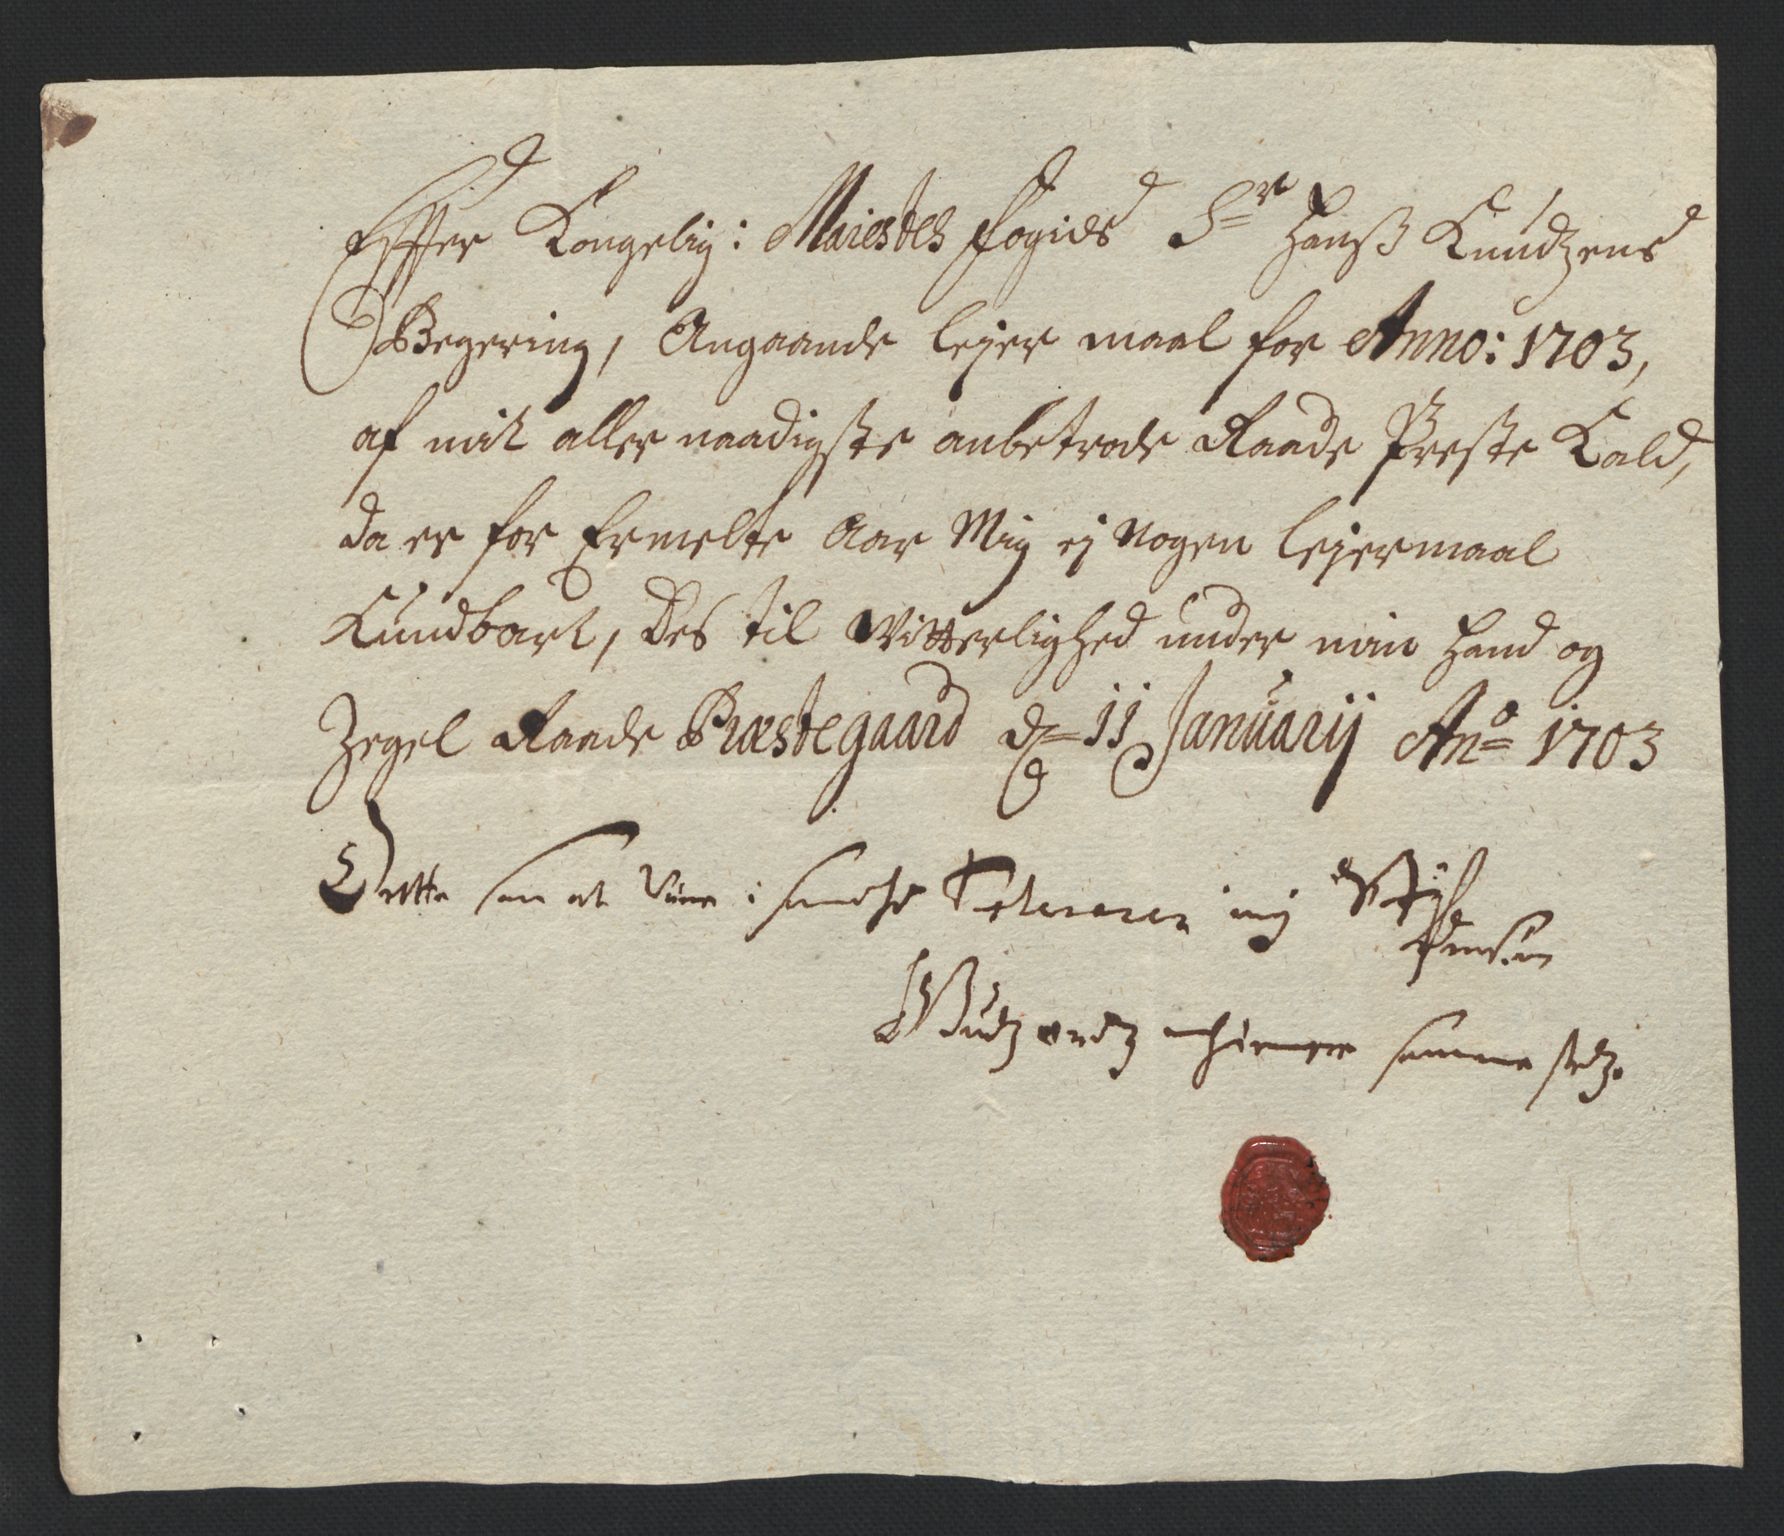 Effter Kongelig: Maiestes fogids Sr Hanß Knudzens
Begering, Angaande lejer maal for Anno: 1703,
af mit aller naadigste anbetrode Raade Preste Kald,
da er for Ermelte Aar Mig ej nogen lejermaal
Kundbart, Des til Witterlighed under min Haand og
Zegel Raade Præstegaard d 11 Januarij Ano 1703
Dette saa at være i sandhed
samme stedz.